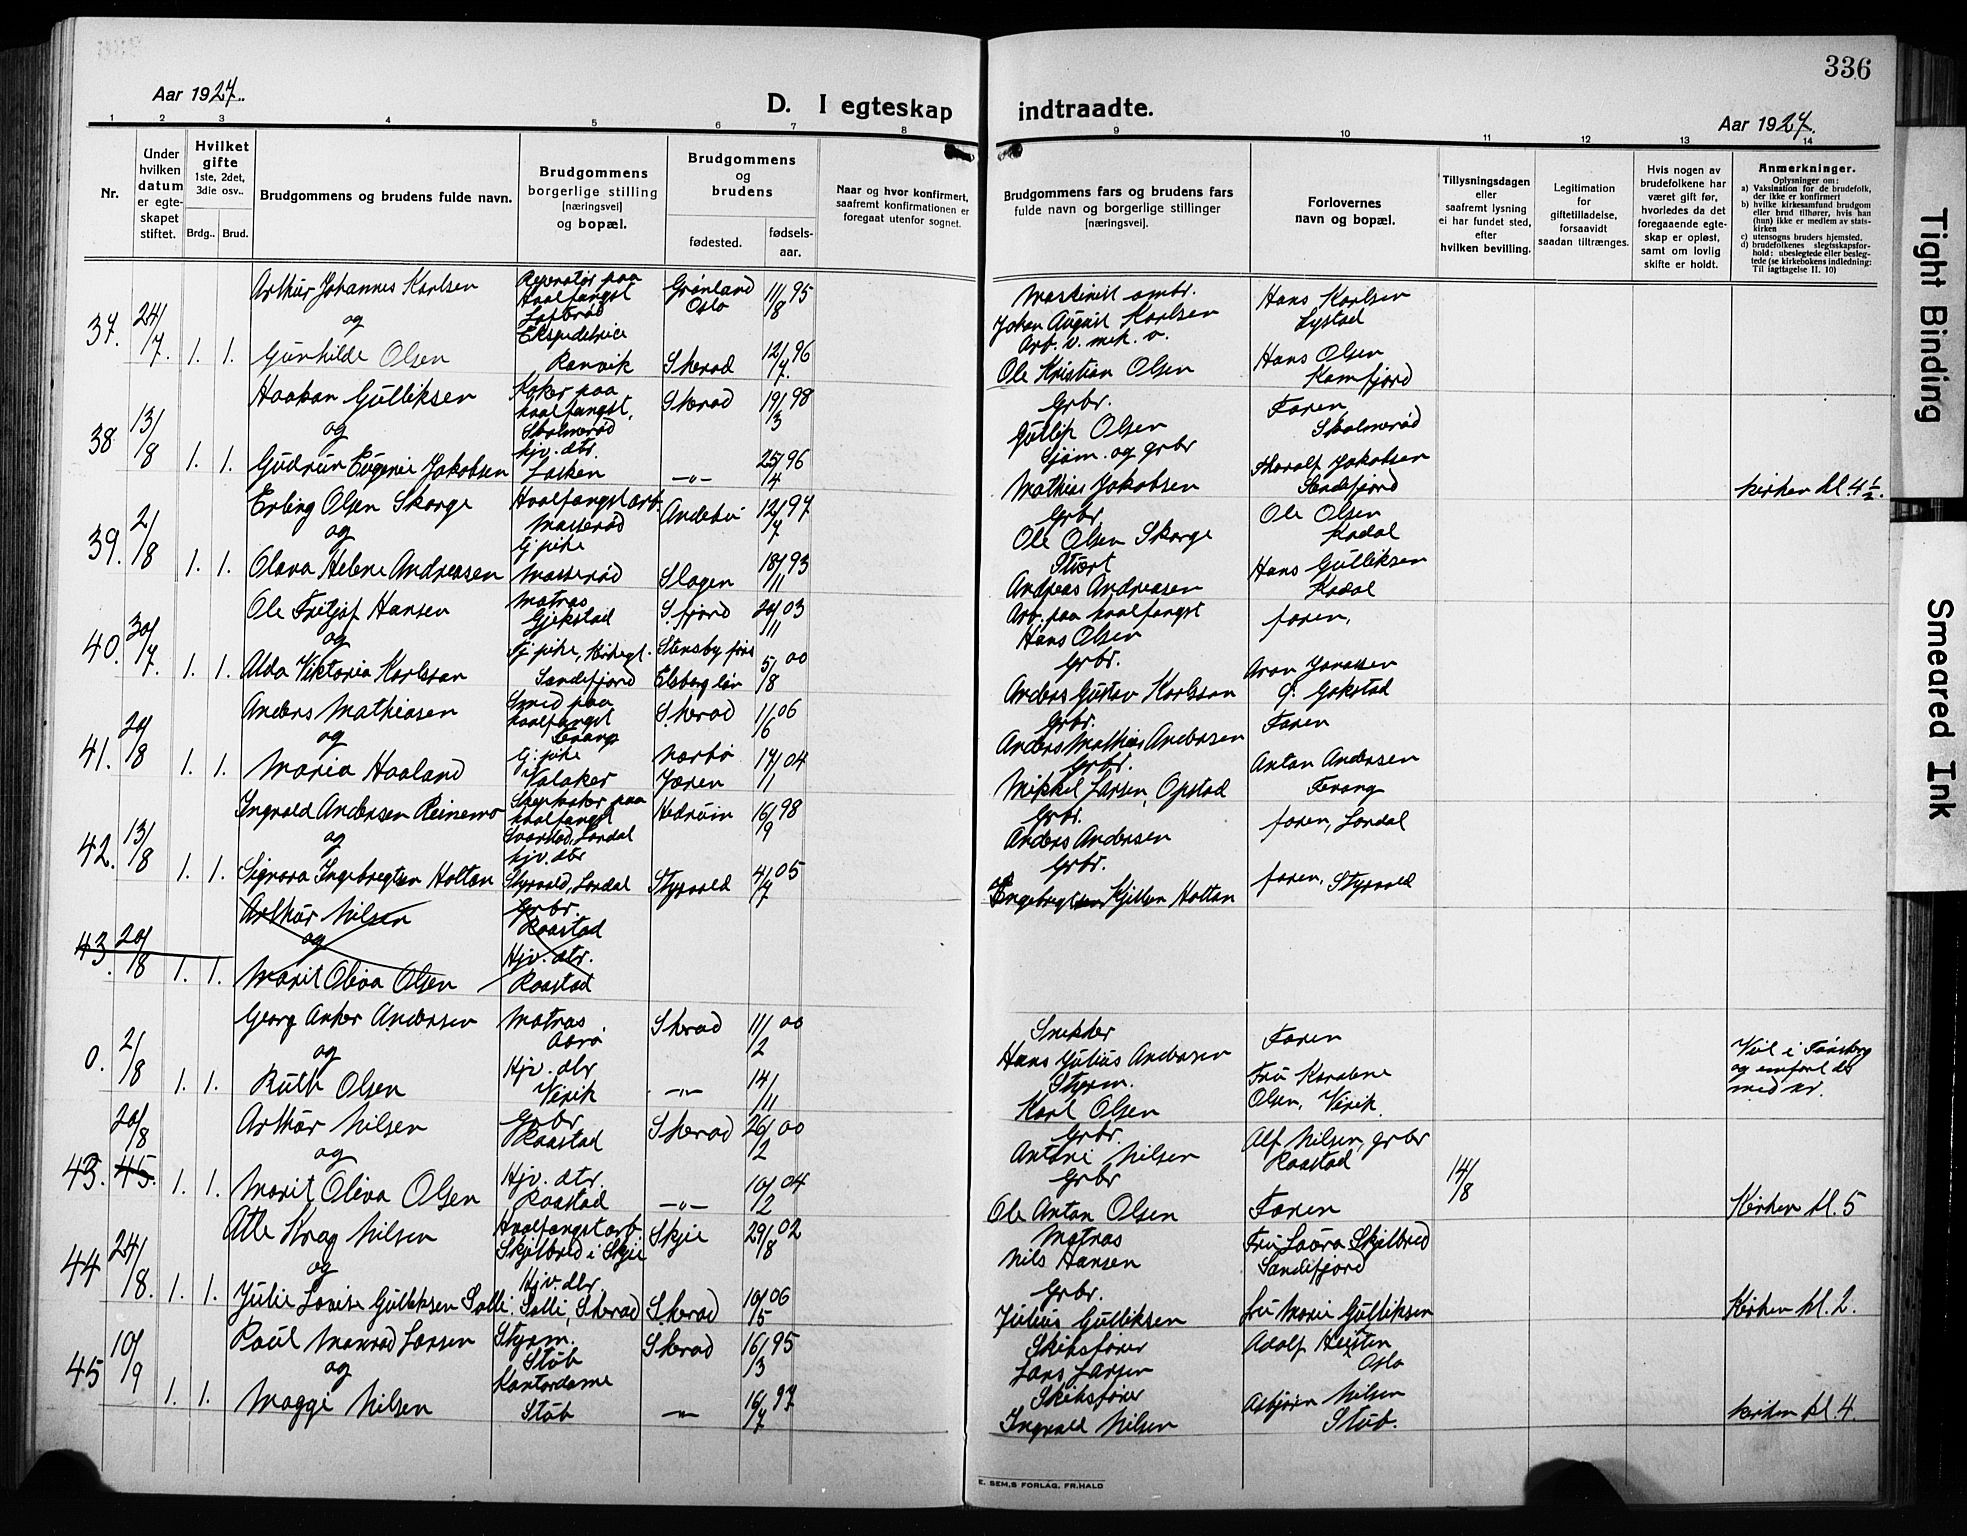 336
Aar 1927.
D. I egteskap indtraadte.
Aar 1927.
1 2 3 4 5 6 7 8 9 10 11 12 13 14
Nr.
Under hvilken datum er egteskapet stiftet.
Hvilket gifte 1ste, 2det, 3die osv..
Brdg.. Brud.
Brudgommens og brudens fulde navn.
Brudgommens borgerlige stilling (næringsvei) og bopæl.
Brudgommens og brudens
fødested.
fødsels-aar.
Naar og hvor konfirmert, saafremt konfirmationen er foregaat utenfor sognet.
Brudgommens fars og brudens fars fulde navn og borgerlige stillinger (næringsvei).
Forlovernes navn og bopæl.
Tillysningsdagen eller saafremt lysning ei har fundet sted, efter hvilken bevilling.
Legitimation for giftetilladelse, forsaavidt saadan tiltrænges.
Hvis nogen av brudefolkene har været gift før, hvorledes da det foregaaende egteskap er opløst, samt om lovlig skifte er holdt.
Anmerkninger.
Oplysninger om:
a) Vaksination for de brudefolk, der ikke er konfirmert
b) hvilke kirkesamfund brudgom eller brud tilhører, hvis han (hun) ikke er medlem av statskirken
c) utensogns bruders hjemsted,
d) brudefolkenes slegtsskapsforhold: ubeslegtede eller beslegtede (se kirkebokens indledning: Til iagttagelse II. 10)
37. 24/7. 1. 1.
Arthur Johannes Karlsen
og
Gunhilde Olsen
Reperatør paa Hvalfangst
Ekspeditrice
Ranvik
Grønland Oslo 11/8 95
Sherad 12/7. 96
Maskinist
Johan August Karlsen
Arb. v. mek. v.
Ole Kristian Olsen
Hans Karlsen
Lystad
Hans Olsen
Kamfjord
38 13/8 1. 1.
Haakan Gulliksen
og
Gudrun Eugenie Jakobsen
Koker paa hvalfangst,
Skolmerød
hjv. dtr.
Lasken
Sherad 19/3 98
—"— 25/4 96
Grbr.
Gullip Olsen
Sjøm. og grbr
Mathias Jakobsen
Faren,
Skolmerød
Tharalf Jakobsen
Sandefjord
kirken kl. 4½.
39. 2/8 1. 1.
Erling Olsen Skorge
og
Olava Helene Andreasen
Hvalfangstarb.
Masserød
Tj. pike
Masserød
Andebu 12/7 97
Slagen 18/11 93
Grbr.
Ole Olsen Skorge
Stuert
Andreas Andreasen
Ole Olsen
Kodal
Hans Gulliksen
Kodal
40. 30/7. 1. 1.
Ole Fritjof Hansen
og
Alda Viktoria Karlsson
Matros
Gjekstad
Tj. pike, Kirkegt.
Sandefjord
S.fjord 20/11 03
Elsborg län 5/8 00
Arb. paa hvalfangst
Hans Olsen
Grbr.
Anders Gustav Karlsson
faren,
Aron Jonassen
Ø. Gokstad
41. 20/8 1. 1.
Anders Mathiasen
og
Maria Haaland
Smed paa hvalfangst
Tj. pike
Valaker
Sherad 1/6 06
Nærbø Jæren 17/1 04
Grbr.
Anders Mathias Andersen
Grbr.
Mikkel Larsen, Opstad
Faren
Anton Andersen
42. 13/8 1. 1.
Ingvald Andersen Reinemo
og
Signora Ingebregtsen Holtan
hvalfangst
Svarstad, Lardal
hjv. dtr
Styrvold, Lardal
Hedrum 16/9 98
Styrvold 4/7 05
Grbr.
Anders Andersen
Grbr.
Ingebregtsen Kjittlsen Holtan
faren, Lardal
faren, Styrvold
43. 20/8 1. 1.
Arthur Nilsen
og
Marit Oliva Olsen
Grbr.
Raastad
Hjv. dtr.
Raastad
0. 2/8 1. 1.
Georg Anker Andersen
og
Ruth Olsen
Matros
Hjv. dtr
Virik
Sherad 11/2 00
—"— 14/11
Snekker
Hans Julius Andersen
Styrm.
Karl Olsen
Faren
Fru Karoline
Olsen, Virik.
Viet i Tønsberg
og innført der
med nr.
43. 45. 20/8 1. 1.
Arthur Nilsen
og
Marit Oliva Olsen
Grbr
Raastad
Hjv. dtr.
Raastad
Sherad 26/2 00
—"— 10/2 04
Grbr.
Antoni Nilsen
Grbr
Ole Anton Olsen
Alf Nilsen, grbr
Raastad
Faren
14/8
Kirken kl. 5
44 24/8. 1. 1.
Atle Krag Nilsen
og
Julie Lovise Gulliksen Solli
Hvalfangstarb.
Skjelbred i Skjee
Hjv. dtr
Solli, Sherad
Skjee 29/8 02
Sherad 10/5 06
Matros
Nils Hansen
Grbr.
Julius Gulliksen
Fru Laura Skjelbred
Sandefjord
fru Marie Gulliksen
Kirken kl. 2.
45 10/9 1. 1.
Paul Monrad Larsen
og
Maggi Nilsen
Styrm.
Støb
Kontordame
Støb
Sherad 16/3 95
—"— 16/7 97
Skibsfører
Lars Larsen
Skibsfører
Ingvald Nilsen
Adolf
Oslo
Asbjørn Nilsen
Støb.
kirken kl. 4.
E. SEM.S FORLAG. FR.HALD
Tight Binding
Smeared Ink